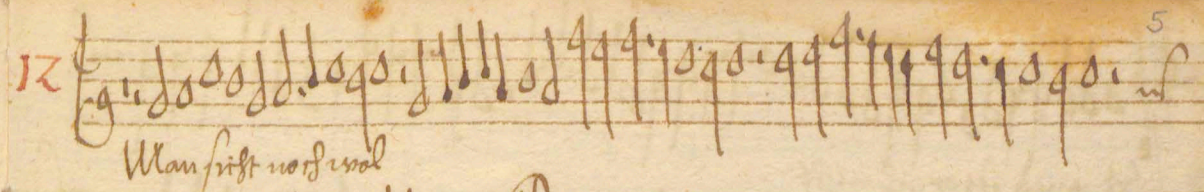 12
5
Man sicht noch wol